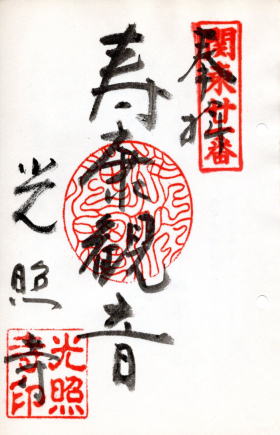 関東廿番
奉拝
寿康観音
光照寺
光照寺印